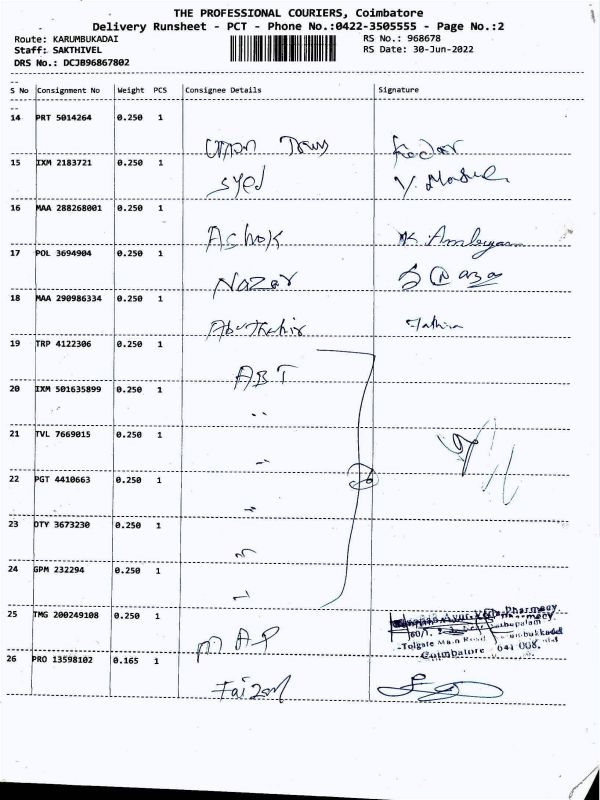 THE PROFESSIONAL COURIERS, Coimbatore
Delivery Runsheet - PCT - Phone No.:0422-3505555 - Page No.:2
Route: KARUMBUKADAI RS No.: 968678
Staff: SAKTHIVEL RS Date: 30-Jun-2022
DRS No.: DCJB96867802
S No Consignment No Weight PCS Consignee Details Signature
14 PRT 5014264 0.250 1
15 IXM 2183721 0.250 1 Syed
16 MAA 288268001 0.250 1 Ashok
17 POL 3694904 0.250 1 Nazar
18 MAA 290986334 0.250 1
19 TRP 4122306 0.250 1 ABT
20 IXM 501635899 0.250 1
21 TVL 7669015 0.250 1
22 PGT 4410663 0.250 1
23 OTY 3673230 0.250 1
24 GPM 232294 0.250 1
25 TMG 200249108 0.250 1 MAP
Pharmacy
Coimbatore - 641 008.
26 PRO 13598102 0.165 1